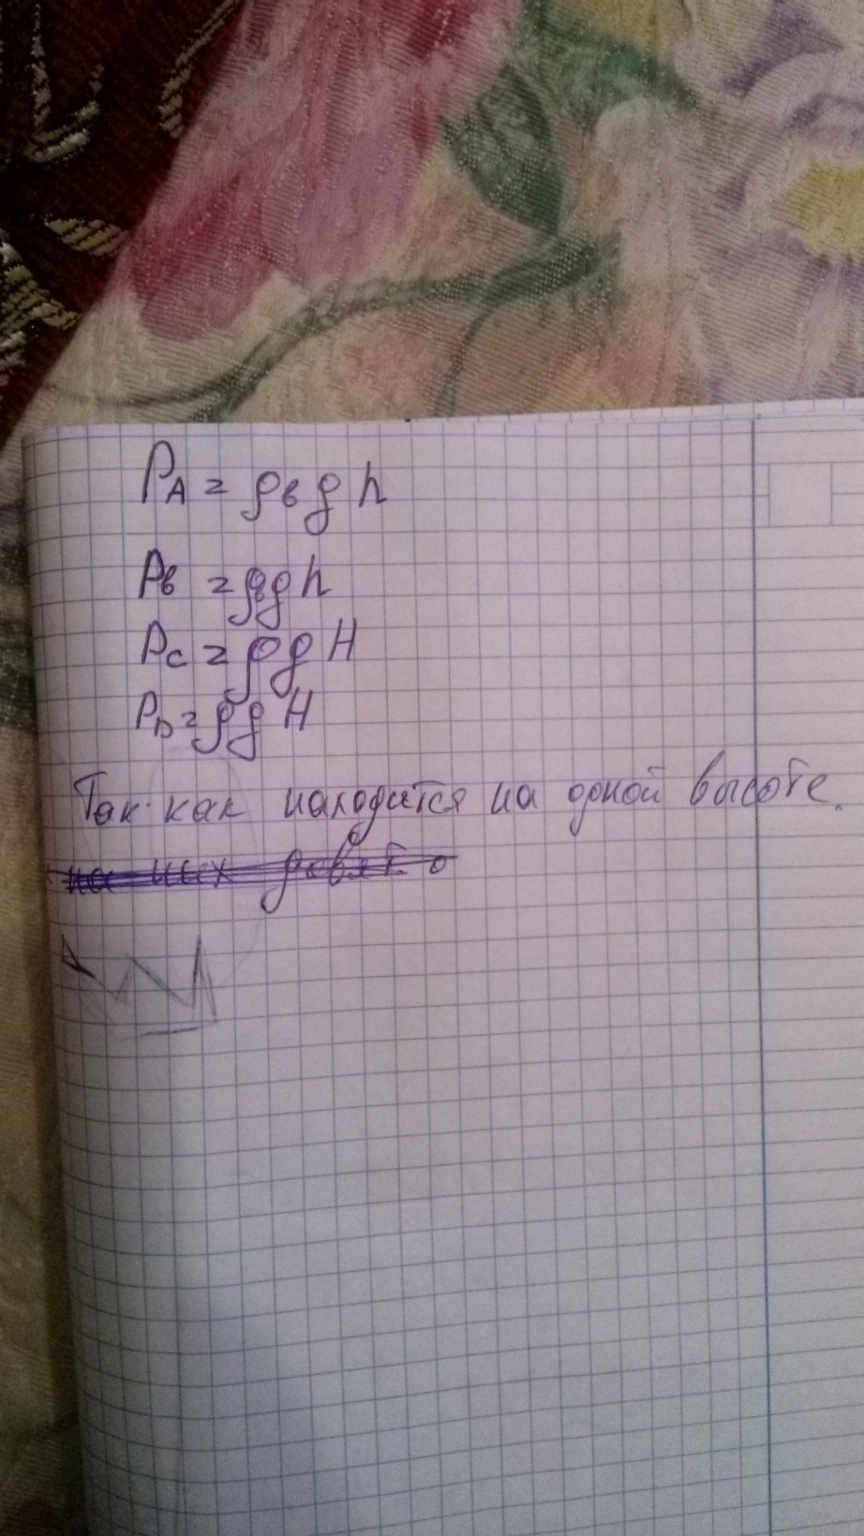 P_A = ρ_в g h
P_в = ρ g h
P_C = ρ g H
P_D = ρ g H
Так как находится на одной высоте.
на них